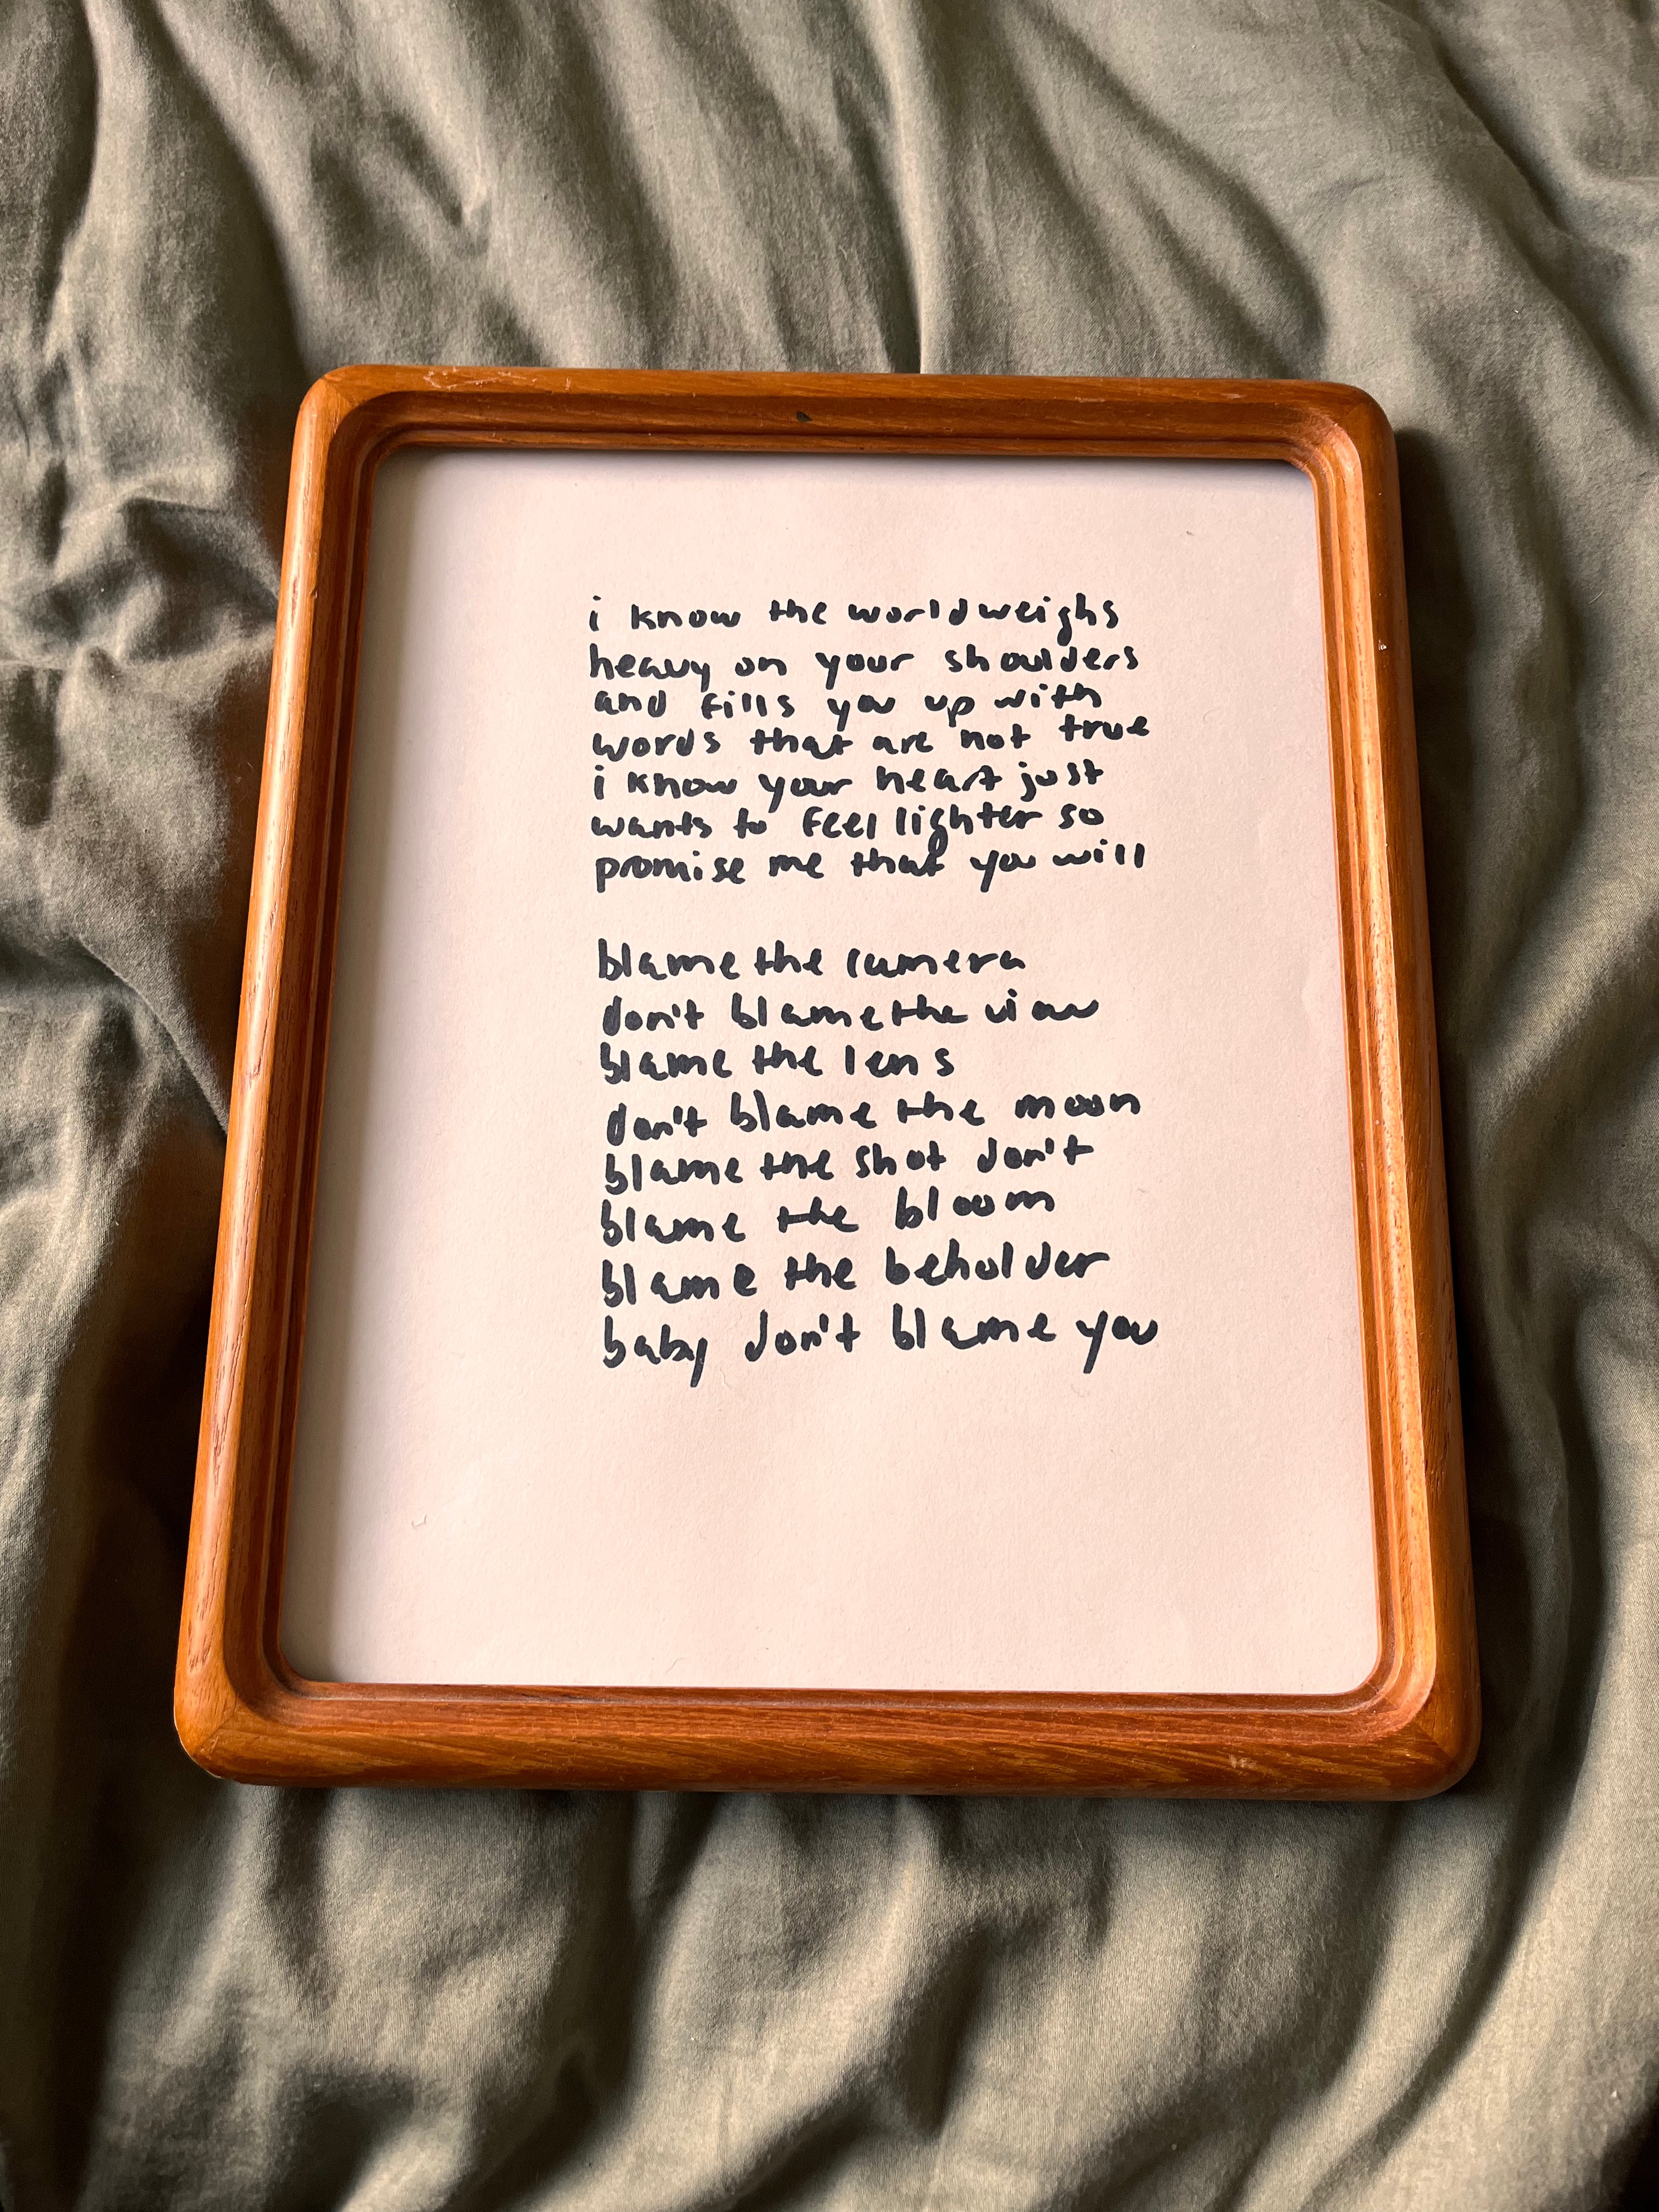 i know the world weighs
heavy on your shoulders
and fills you up with
words that are not true
i know your heart just
wants to feel lighter so
promise me that you will
blame the camera
don't blame the view
blame the lens
don't blame the moon
blame the shot don't
blame the bloom
blame the beholder
baby don't blame you